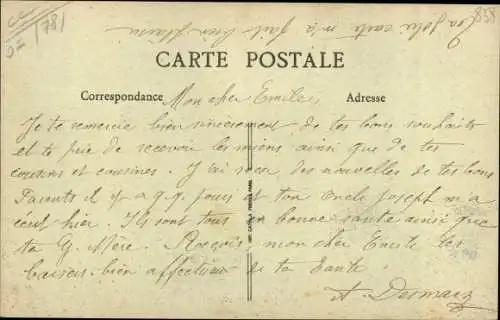 858
178
Ta jolie carte m'a fait bien plaisir
CARTE POSTALE
Correspondance
Adresse
Mon cher Emile,
Je te remercie bien sincèrement de tes bons souhaits
et te prie de recevoir les miens ainsi que de tes
cousins et cousines. J'ai reçu des nouvelles de tes bons
Parents il y a q.q. jours et ton oncle Joseph m'a
écrit hier. Ils sont tous en bonne santé ainsi que
ta G. Mère. Reçois, mon cher Emile les
baisers bien affectueux de ta Tante
A. Desmarz